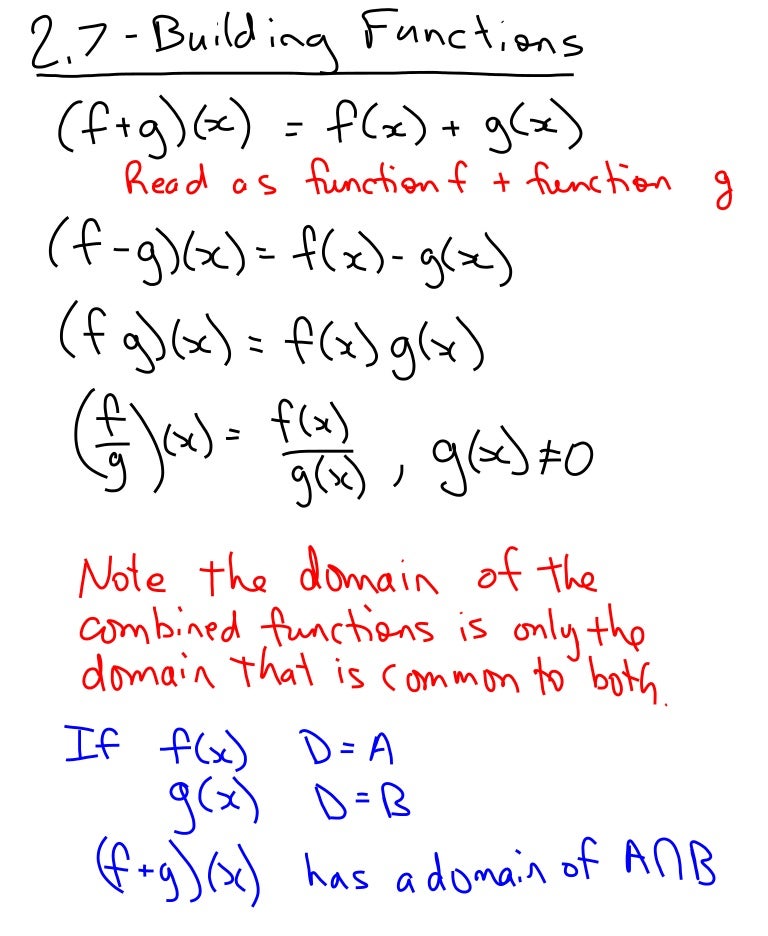 2.7 - Building Functions
(f+g)(x) = f(x) + g(x)
Read as function f + function g
(f-g)(x) = f(x) - g(x)
(fg)(x) = f(x)g(x)
(f/g)(x) = f(x)/g(x), g(x)≠0
Note the domain of the
combined functions is only the
domain that is common to both.
If f(x) D=A
g(x) D=B
(f+g)(x) has a domain of A∩B